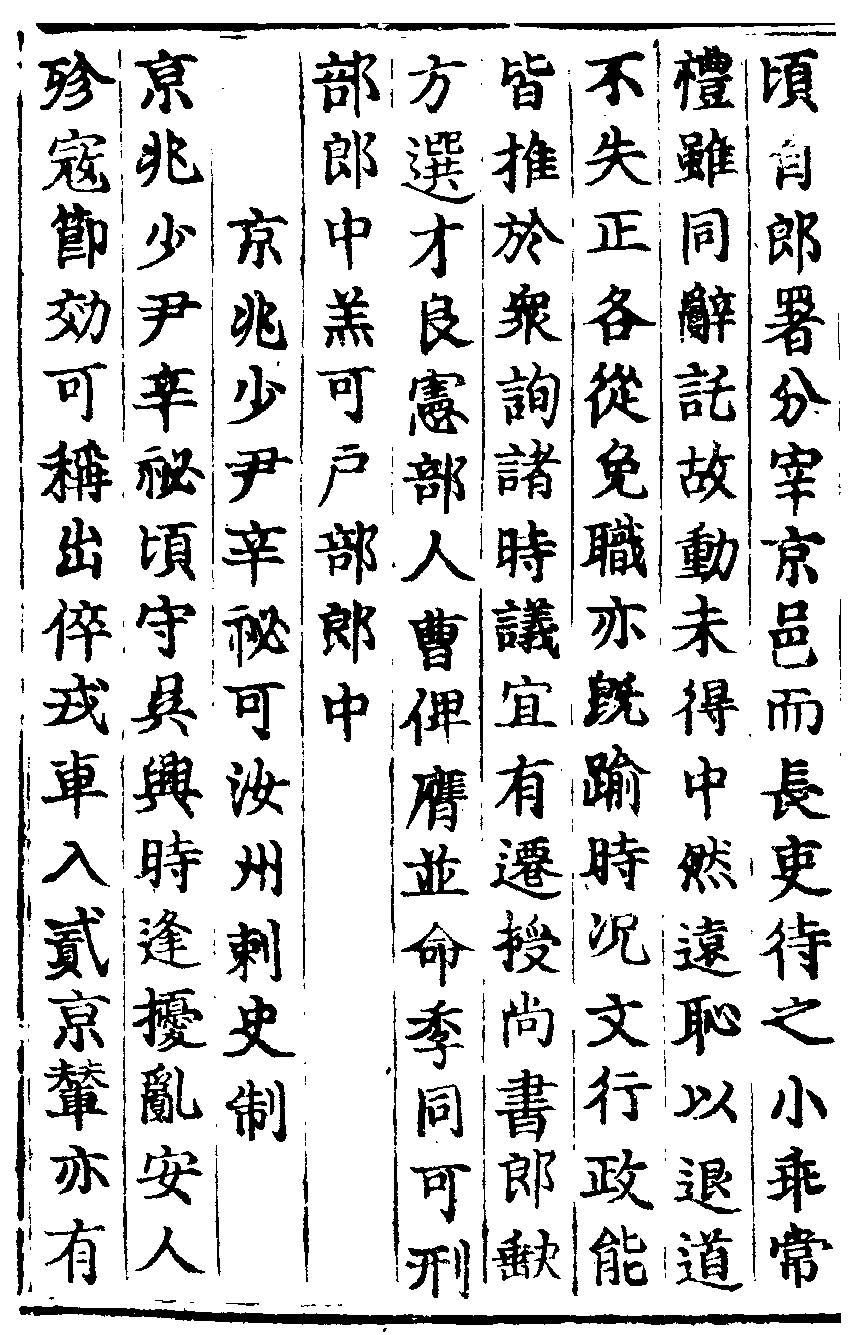 頃自郎署分宰京邑而長吏待之小乖常
禮雖同辭託故動未得中然遠恥以退道
不失正各從免職亦既踰時況文行政能
皆推於衆詢諸時議宜有遷授尚書郎缺
方選才良憲部人曹俾膺並命季同可刑
部郎中羔可戶部郎中
京兆少尹辛祕可汝州刺史制
京兆少尹辛祕頃守吳興時逢擾亂安人
殄寇節効可稱出倅戎車入貳京輦亦有